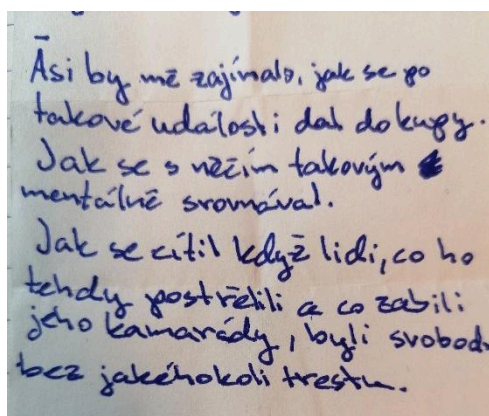 Asi by mě zajímalo, jak se po
takové události dal dokupy.
Jak se s něčím takovým
mentálně srovnával.
Jak se cítil když lidi, co ho
tehdy postřelili a co zabili
jeho kamarády, byli svobod
bez jakéhokoli trestu.